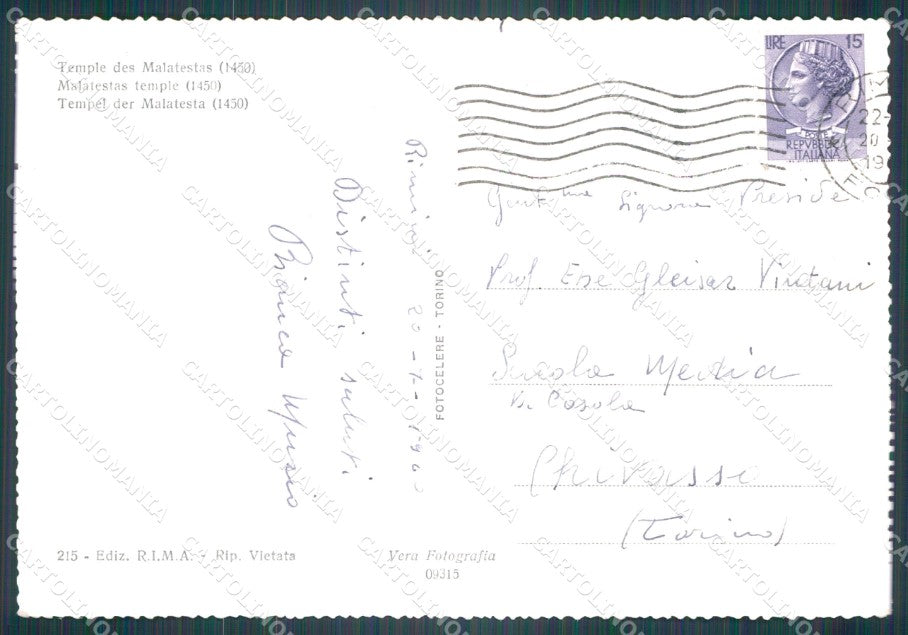 Temple des Malatestas (1450)
Malatestas temple (1450)
Tempel der Malatesta (1450)
LIRE 15
POSTE
REPVBBLICA
ITALIANA
22-
20
19
Rimini 20-7-1960
Distinti saluti
Bianca
FOTOCELERE - TORINO
Gent.ma Signora Preside
Prof.
Scuola Media
V. Casola
Chivasso
(Torino)
215 - Ediz. R.I.M.A. - Rip. Vietata
Vera Fotografia
09315
CARTOLINOMANIA